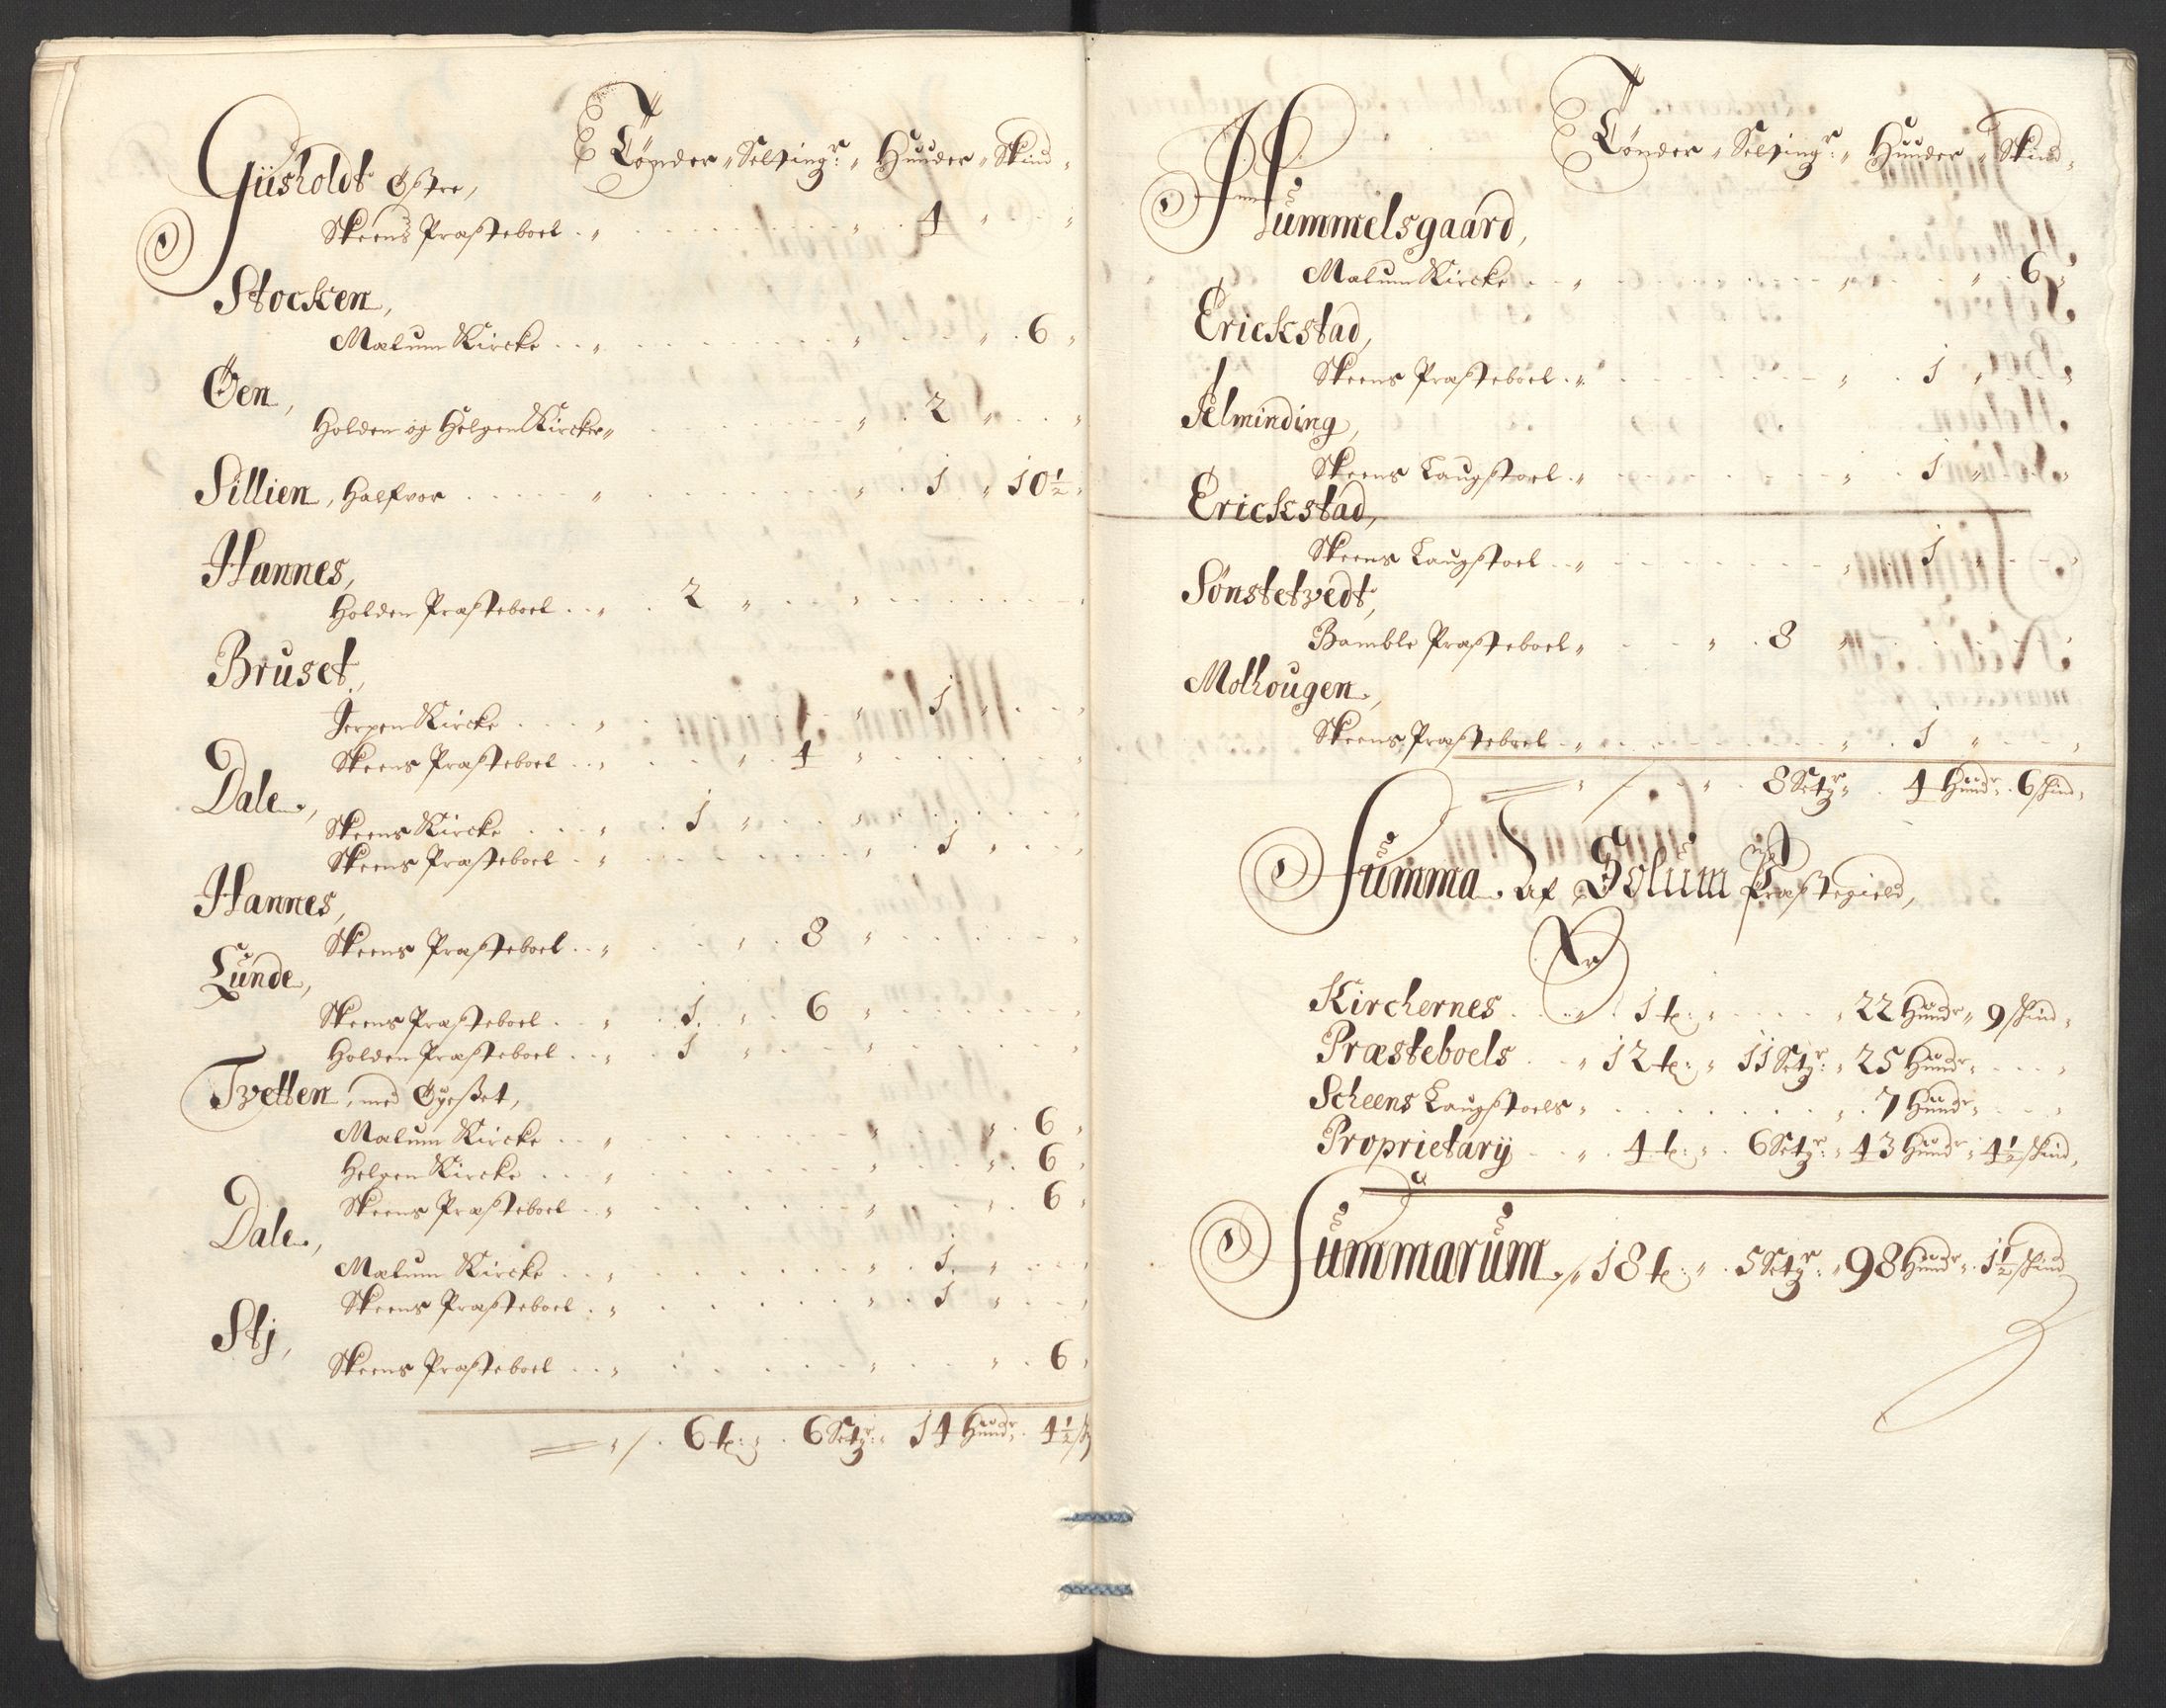 Tønder „ Setting^r: „ Huuder „ Skind „
Güsholdt Østre,
Skeens Præsteboel . „ „ . 4 „ „
Stocken,
Melum Kircke . . „ „ „ . 6 „
Øen,
Holden og Helgen Kircker „ „ . 2 „ „
Sillien, Halfvor . . . . „ „ . 1 „ 10½ „
Hannes,
Holden Præsteboel . . „ . 2 „ „
Bruset,
Jerpen Kircke . . . „ „ 1 „
Skeens Præsteboel . . „ „ . 4 „
Dale,
Skeens Kircke . . . „ . 1 „
Skeens Præsteboel . „ „ . 1 „
Hannes,
Skeens Præsteboel . . „ „ . 8 „
Lunde,
Skeens Præsteboel . „ . 1 . „ 6 „
Holden Præsteboel . . „ . 1 „ „
Tvetten, med Gyesset,
Melum Kircke . . „ „ „ . 6 „
Helgen Kircke . . . „ „ „ . 6 „
Skeens Præsteboel . „ „ „ . 6 „
Dale,
Melum Kircke . . „ „ . 1 . „
Skeens Præsteboel . „ „ . 1 „
Stj,
Skeens Præsteboel . . „ „ „ . 6 „
„ / . 6 t: „ . 6 Set^r: „ 14 Hund^r „ . 4½ sk
Tønder „ Setting^r: „ Hunder „ Skind „
Hummelsgaard,
Melum Kircke . „ „ „ . 6 „
Erickstad,
Skeens Præsteboel . „ „ . 1 „
Alminding,
Skeens Laugstoel . „ „ . 1 „ „
Erickstad,
Skeens Laugstoel . . „ „ 1 „
Sønstetvedt,
Bamble Præsteboel „ „ . 8 „
Molhougen,
Skeens Præsteboel . „ „ . 1 „
„ / „ . 8 Set^r „ . 4 Hund^r „ . 6 skind „
Summa Af Solum Præstegield,
Kirchernes . . „ . 1 t: „ „ 22 Hund^r „ 9 skind „
Præsteboels . . „ 12 t: „ 11 Set^r: „ 25 Hund^r „
Scheens Laugstoels „ „ . 7 Hund^r „
Proprietarij . . „ . 4 t: „ . 6 Set^r: „ 43 Hund^r „ 4½ skind „
Summarum „/„ 18 t: „ . 5 Set^r: „ 98 Hund^r „ . 1½ skind